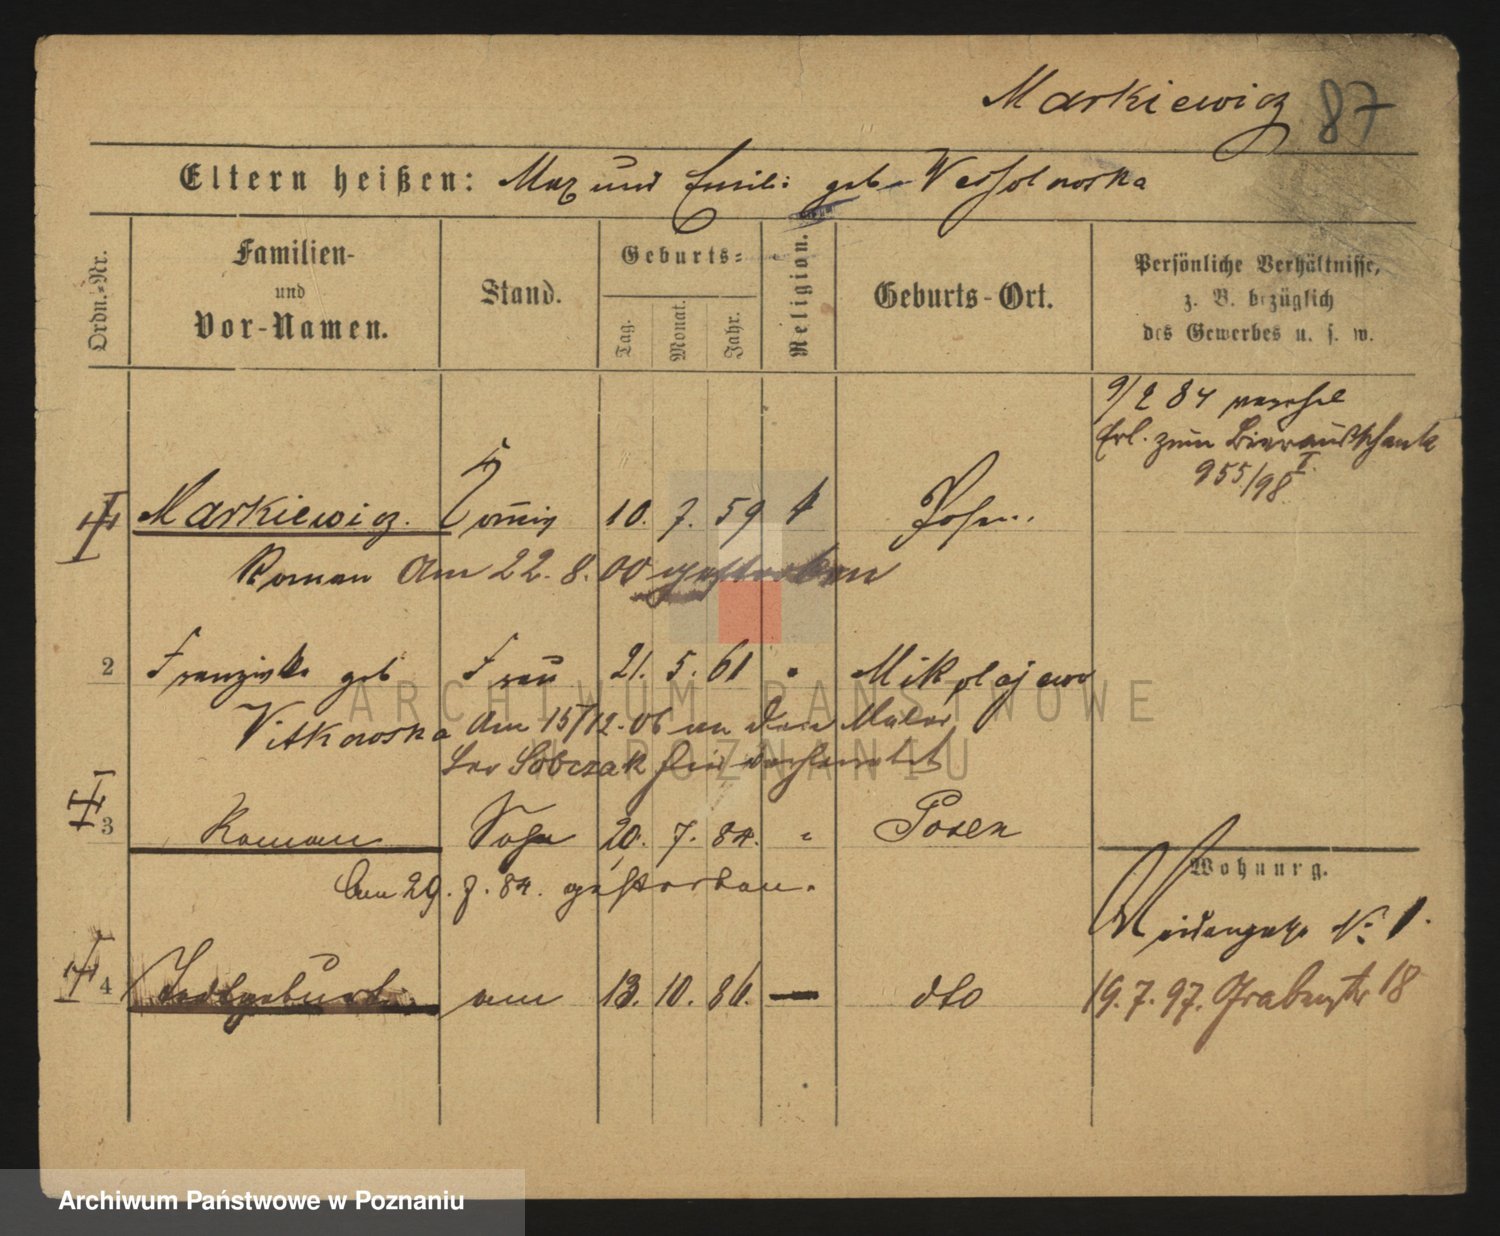 Markiewicz 87
Eltern heißen: Max und Emilie geb. Wessolowska
Ordn.-Nr.
Familien-
und
Vor-Namen.
Stand.
Geburts-
Tag.
Monat.
Jahr.
Religion.
Geburts-Ort.
Persönliche Verhältnisse,
z. B. bezüglich
des Gewerbes u. s. w.
9/2 84
Erl. zum Bierausschank
955/98 I.
Markiewicz. 10. 7. 59 Posen.
Roman Am 22. 8. 00 gestorben
2 Franziska geb Frau 21. 5. 61 " Mikolajewo
Witkowska Am 15/12. 06 an den Maler
Leo Sobczak sich verheiratet
3 Roman Sohn 20. 7. 84. " Posen
Am 29. 7. 84. gestorben.
Wohnung.
Weidengasse No 1.
4 Todtgeburt am 13. 10. 86. — dto
19. 7. 97. Grabenstr 18
ARCHIWUM PAŃSTWOWE
W POZNANIU
Archiwum Państwowe w Poznaniu